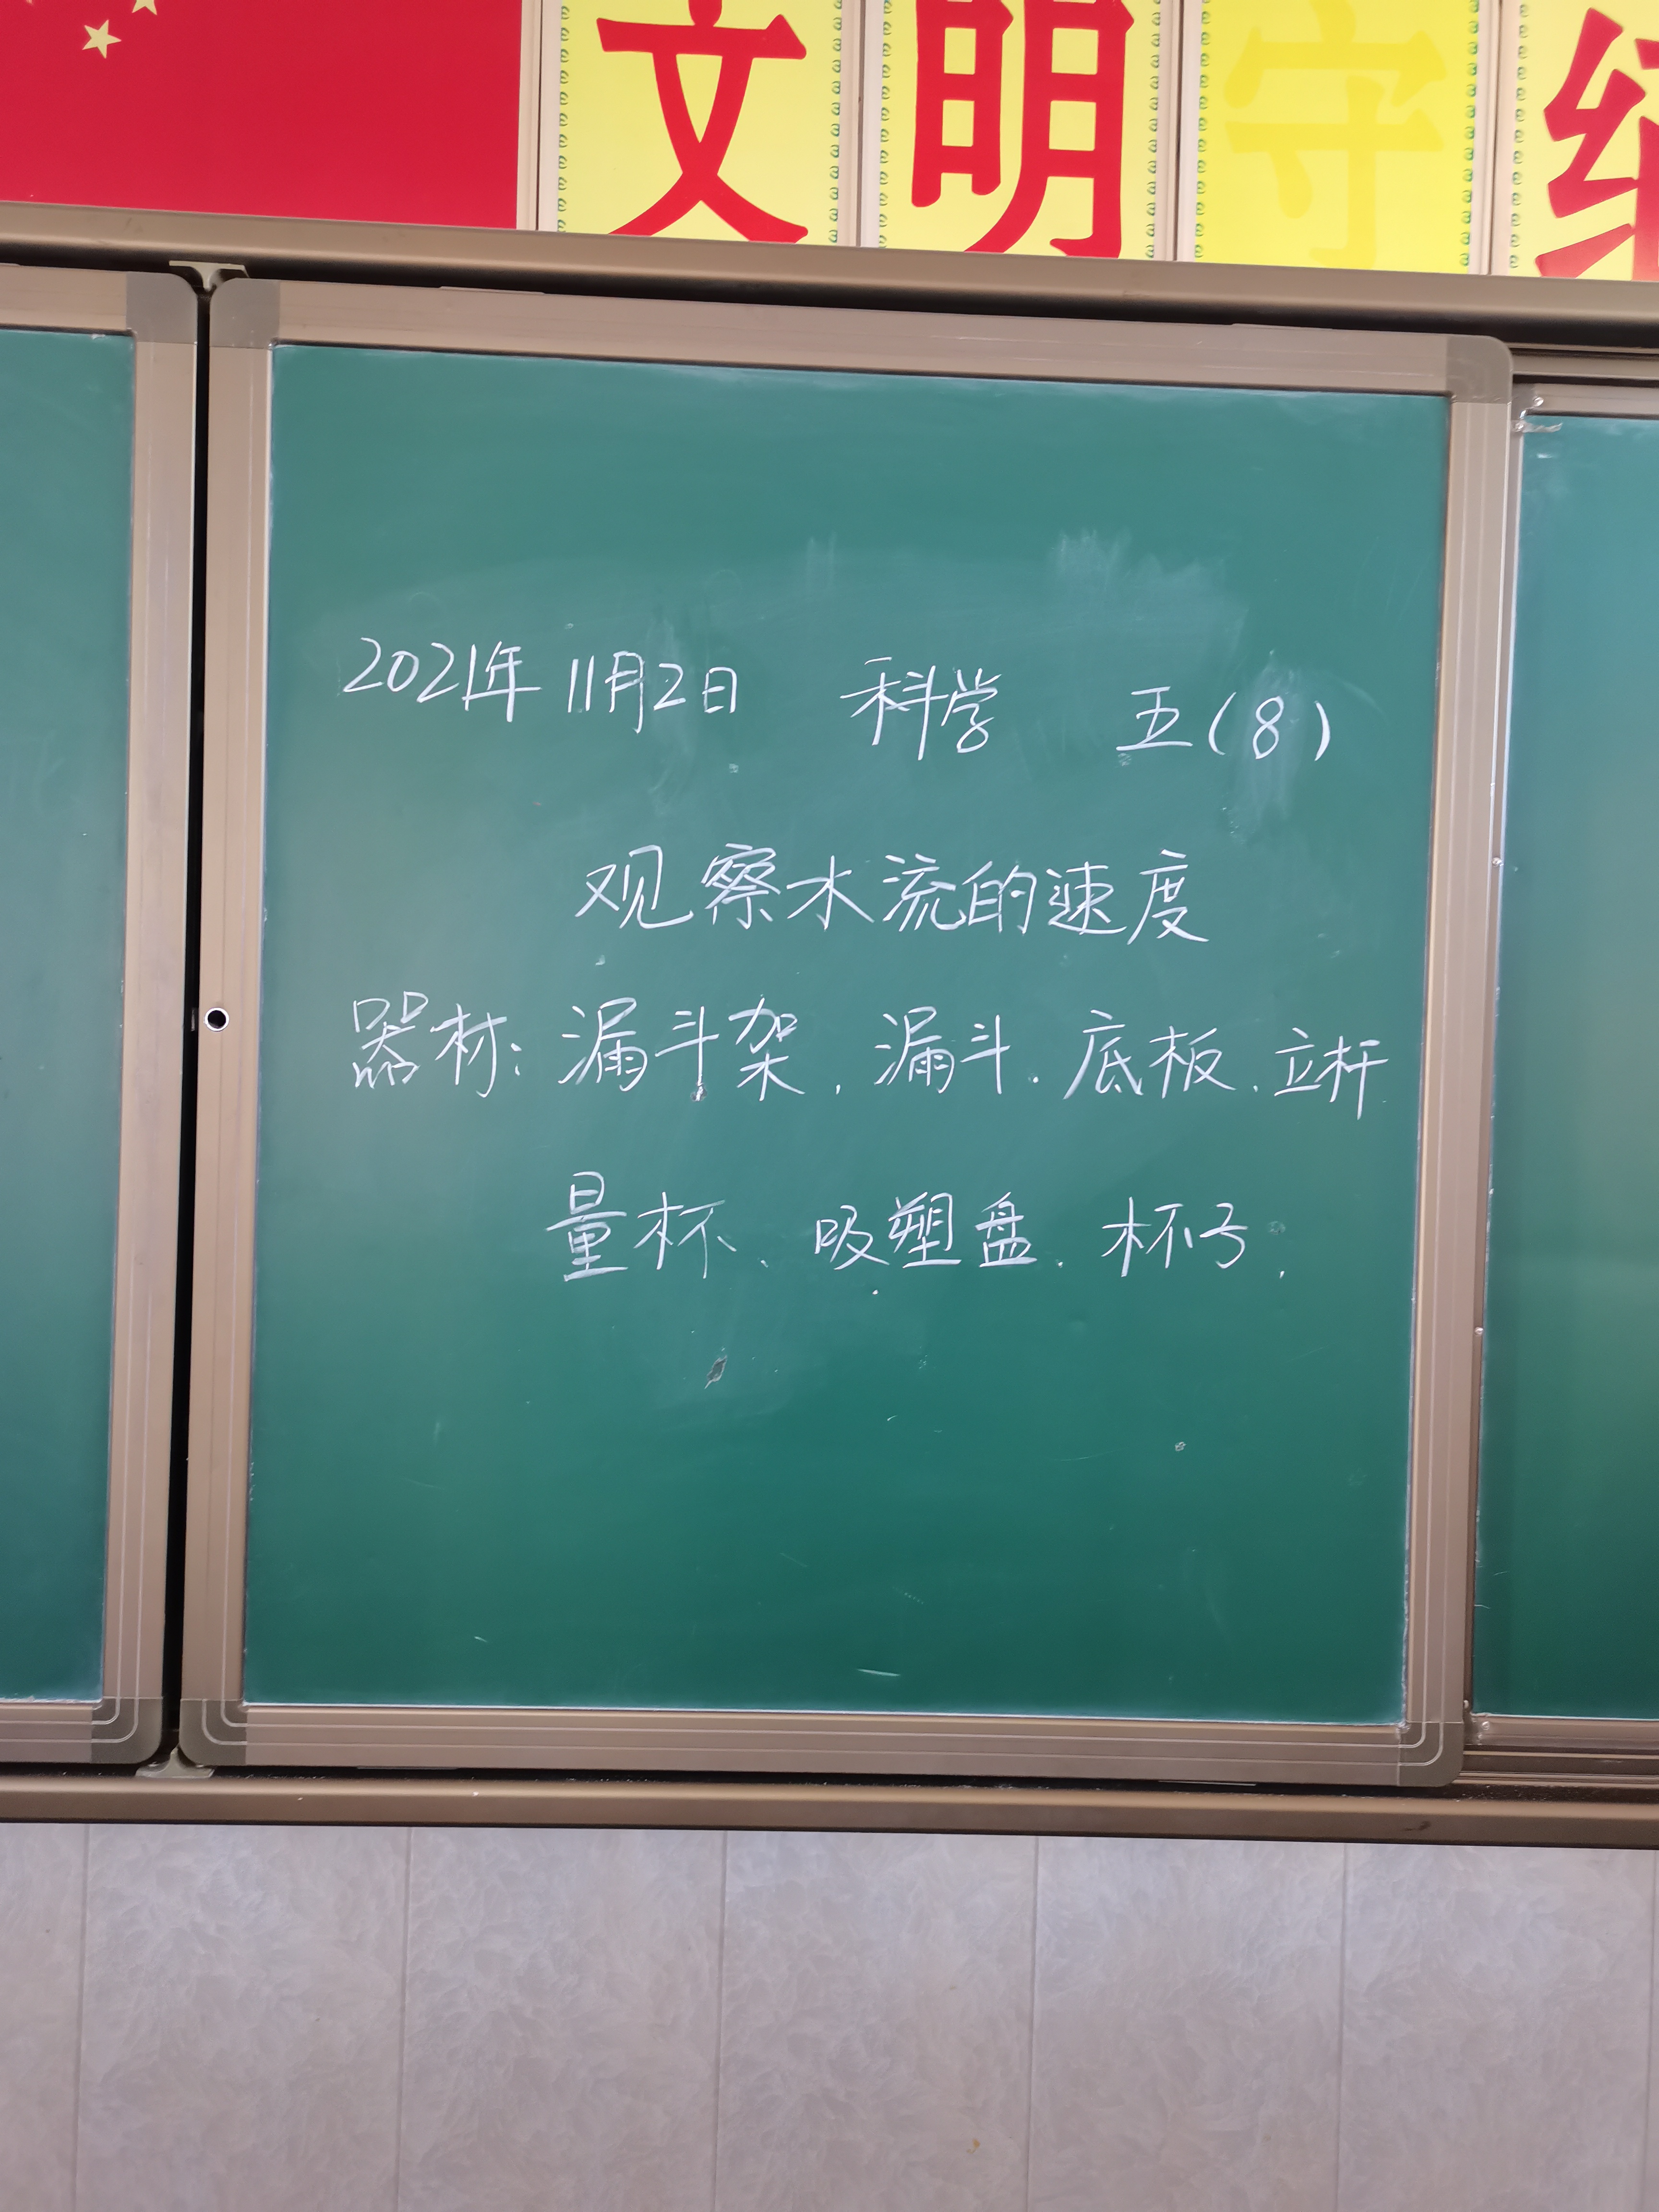 文明守纪
2021年11月2日 科学 五(8)
观察水流的速度
器材:漏斗架、漏斗、底板、立杆
量杯、吸塑盘、杯子、